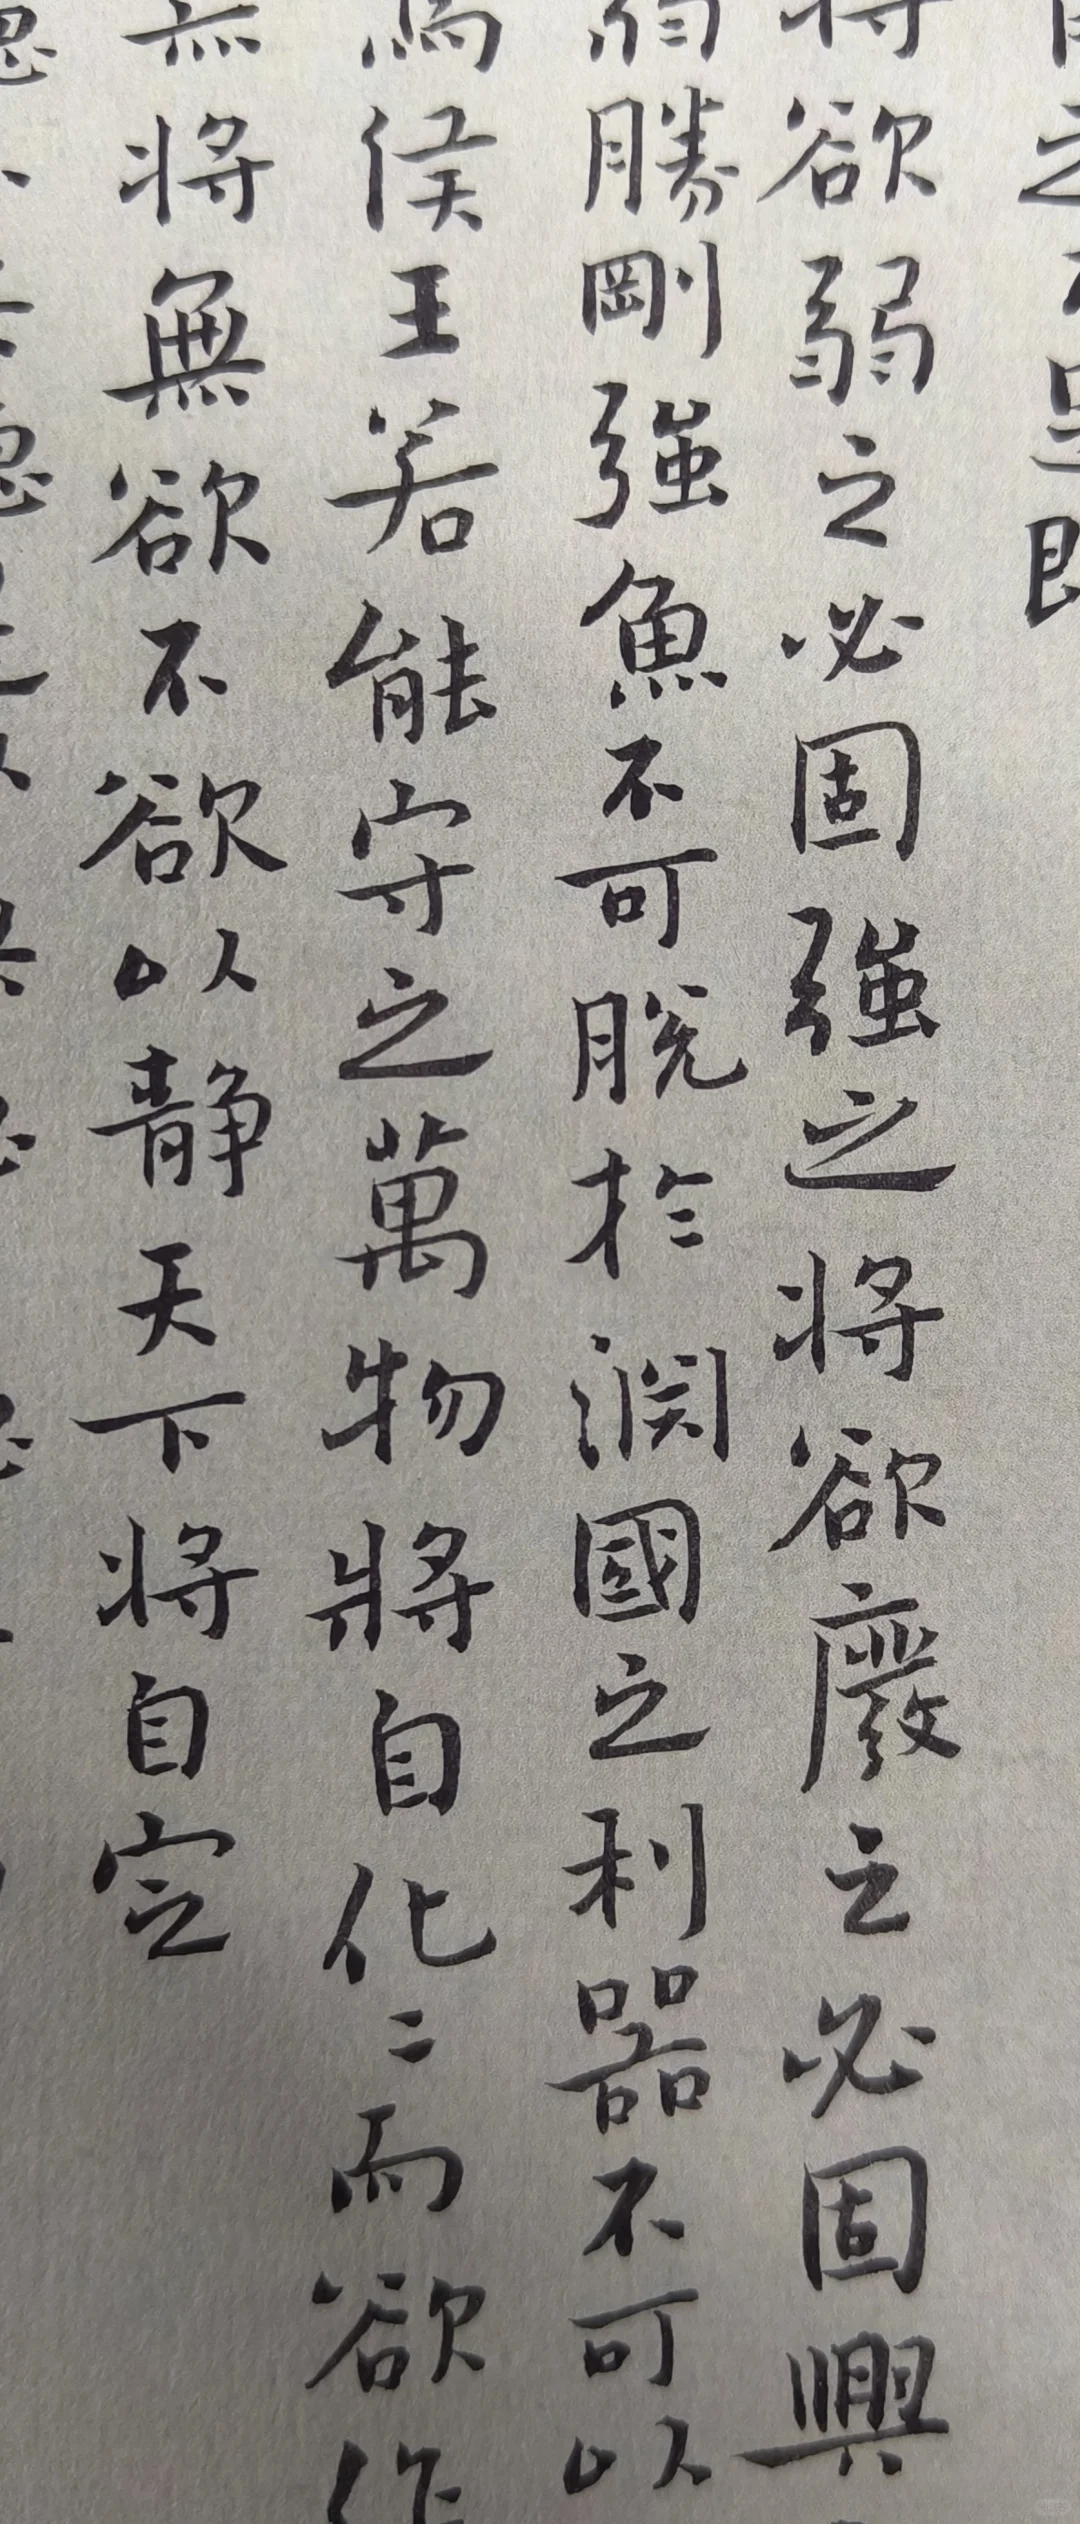 之不足既
將欲弱之必固強之將欲廢之必固興
弱勝剛強魚不可脫於淵國之利器不可以
為侯王若能守之萬物將自化〻而欲作
無將無欲不欲以靜天下將自定